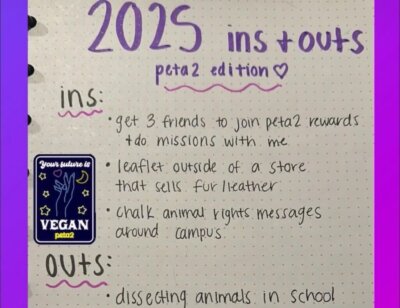 2025 ins + outs
peta2 edition ♡
ins:
• get 3 friends to join peta2 rewards
+ do missions with me
• leaflet outside of a store
that sells fur/leather
• chalk animal rights messages
around campus
Your future is
VEGAN
peta2
outs:
• dissecting animals in school